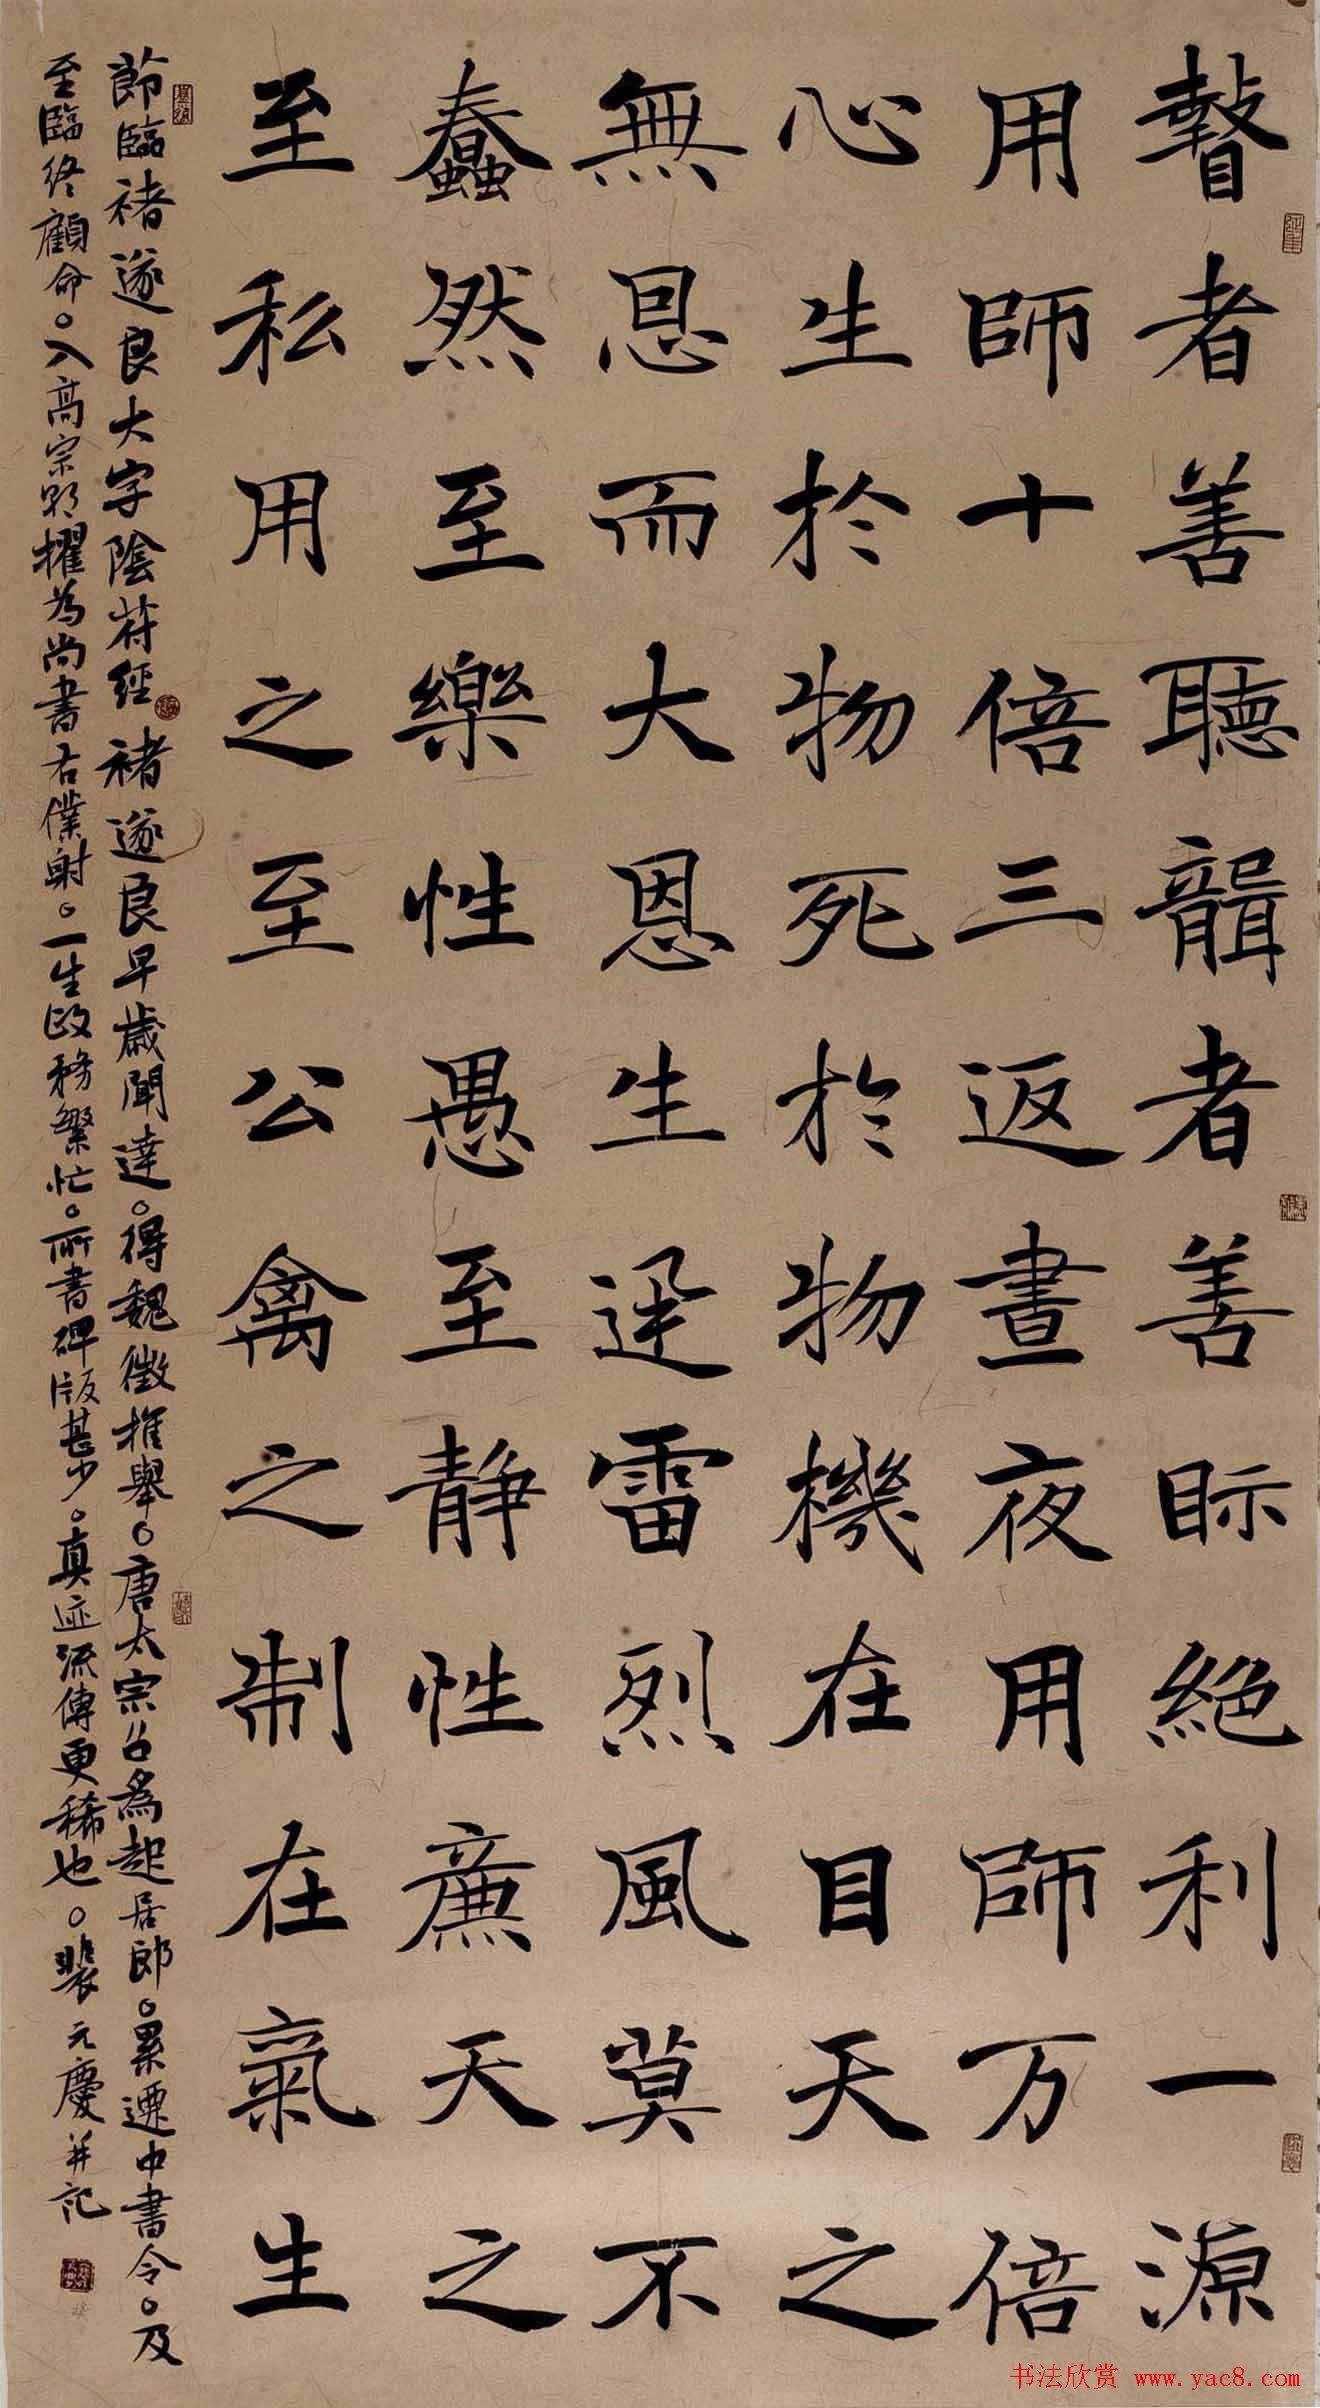 瞽者善聽聾者善眎絕利一源
用師十倍三返晝夜用師万倍
心生於物死於物機在目天之
無恩而大恩生迅雷烈風莫不
蠢然至樂性愚至静性廉天之
至私用之至公禽之制在氣生
節臨褚遂良大字陰符經褚遂良早歲聞達。得魏徵推舉。唐太宗召為起居郎。累遷中書令。及
至臨終顧命。入高宗朝擢為尚書右僕射。一生政務繁忙。所書碑版甚少。真迹流傳更稀也。裴元慶并記
书法欣赏 www.yac8.com